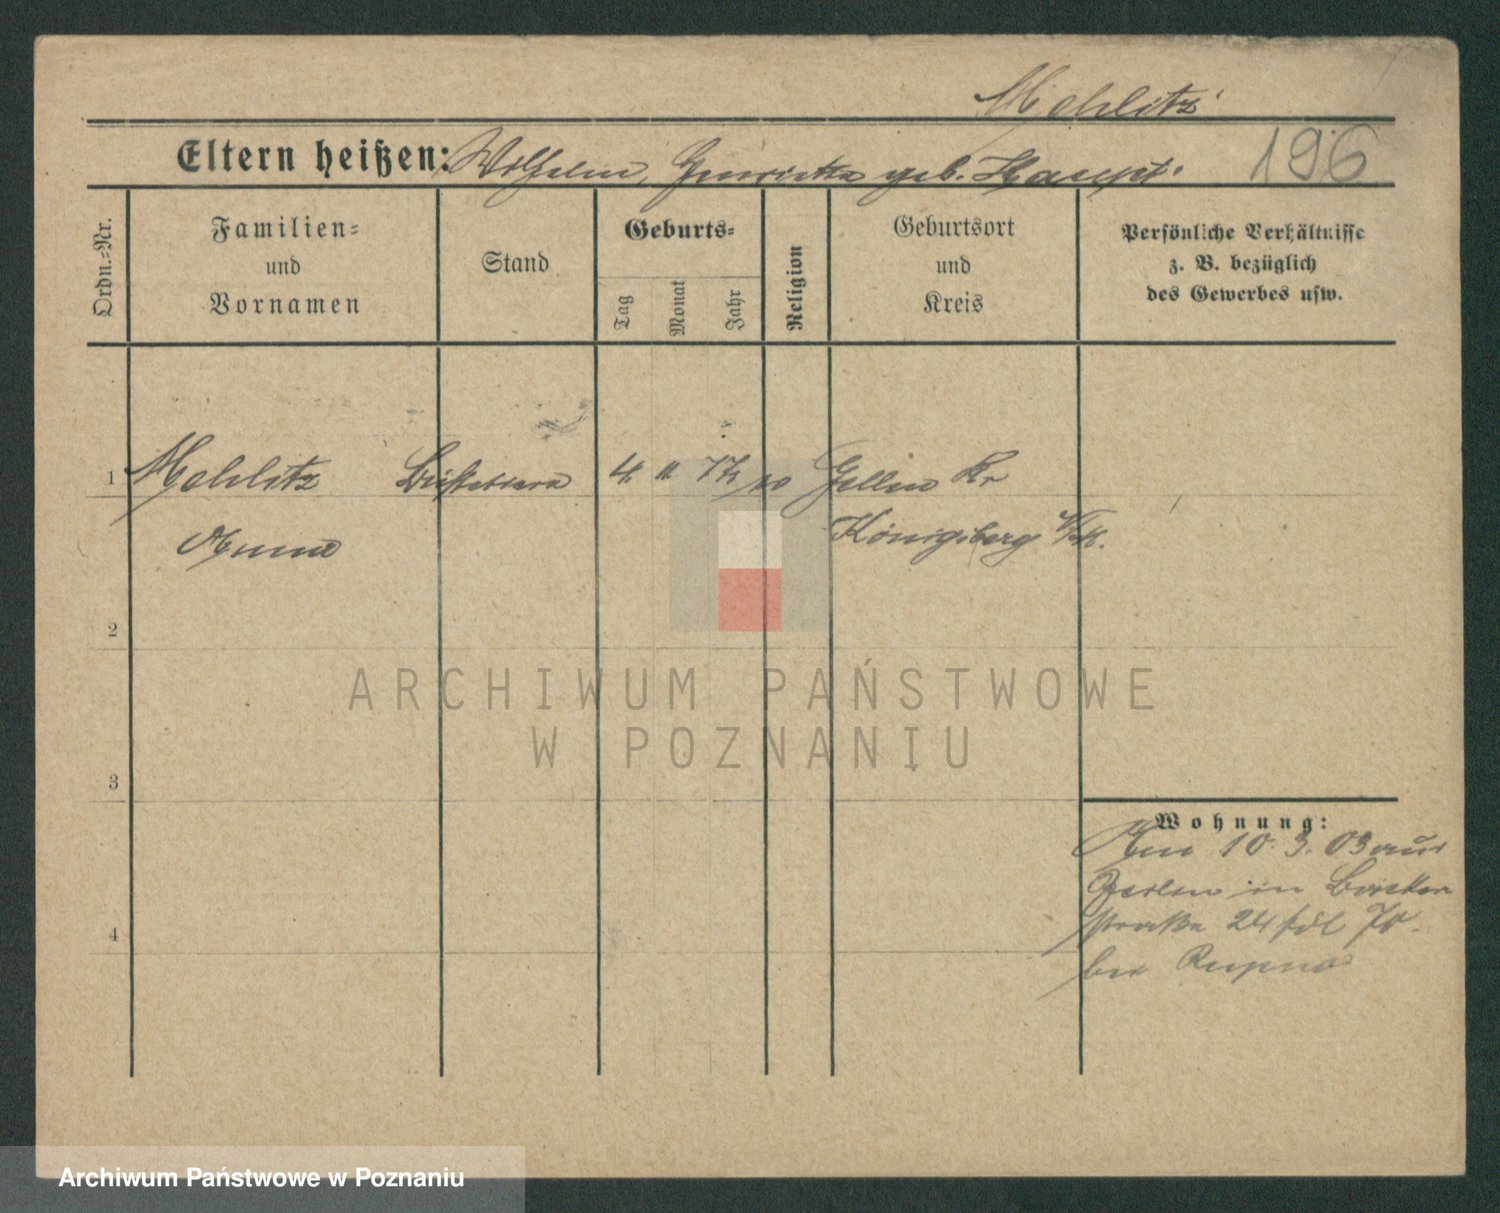 Mehlitz
Eltern heißen: Wilhelm, Henriette geb. Haupt.
196
Ordn.-Nr.
Familien- und Vornamen
Stand
Geburts-
Tag
Monat
Jahr
Religion
Geburtsort und Kreis
Persönliche Verhältnisse z. B. bezüglich des Gewerbes usw.
1 Mehlitz 4. 11. Gellen Kr
Königsberg N/M.
2
3
4
Wohnung:
Am 10. 3. 03 aus
Berlin in
straße 24
bei
ARCHIWUM PAŃSTWOWE
W POZNANIU
Archiwum Państwowe w Poznaniu